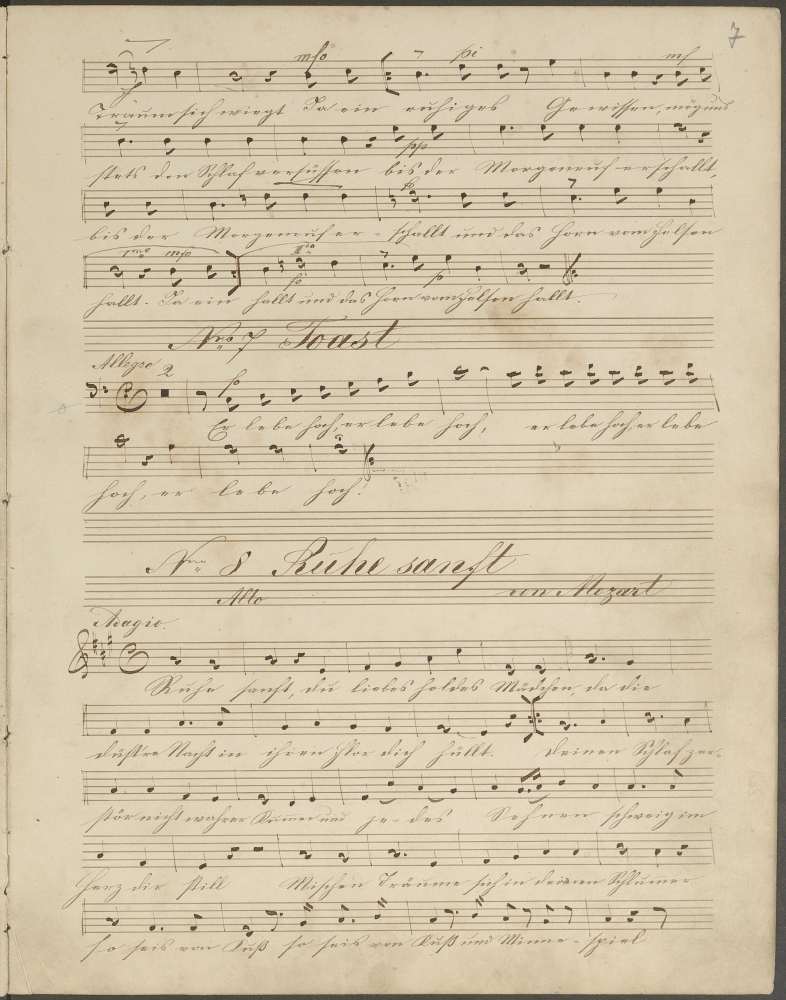 7
mfo pi mf
Träumen sich wiegt Ja ein ruhiges Gewissen, mög uns
pp
stets den Schlaf versüssen bis der Morgenruf erschallt,
bis der Morgenruf er - schallt und das Horn vom Felsen
1mo mfo 2do
fo p
hallt. Ja ein hallt und das Horn vom Felsen hallt.
Nro 7 Toast
Allegro 2
Er lebe hoch, er lebe hoch, er lebe hoch, er lebe
hoch, er lebe hoch!
Nro 8 Ruhe sanft
Alto von Mozart
Adagio.
Ruhe sanft, du liebes holdes Mädchen, da die
düst're Nacht in ihren Flor dich hüllt. Deinen Schlaf zer-
stör nicht wahrer Kummer und je - des Sehnen schweig im
Herz dir still Mischen Träume sich in deinen Schlummer
so seis von Kuß so seis von Kuß und Minne - spiel